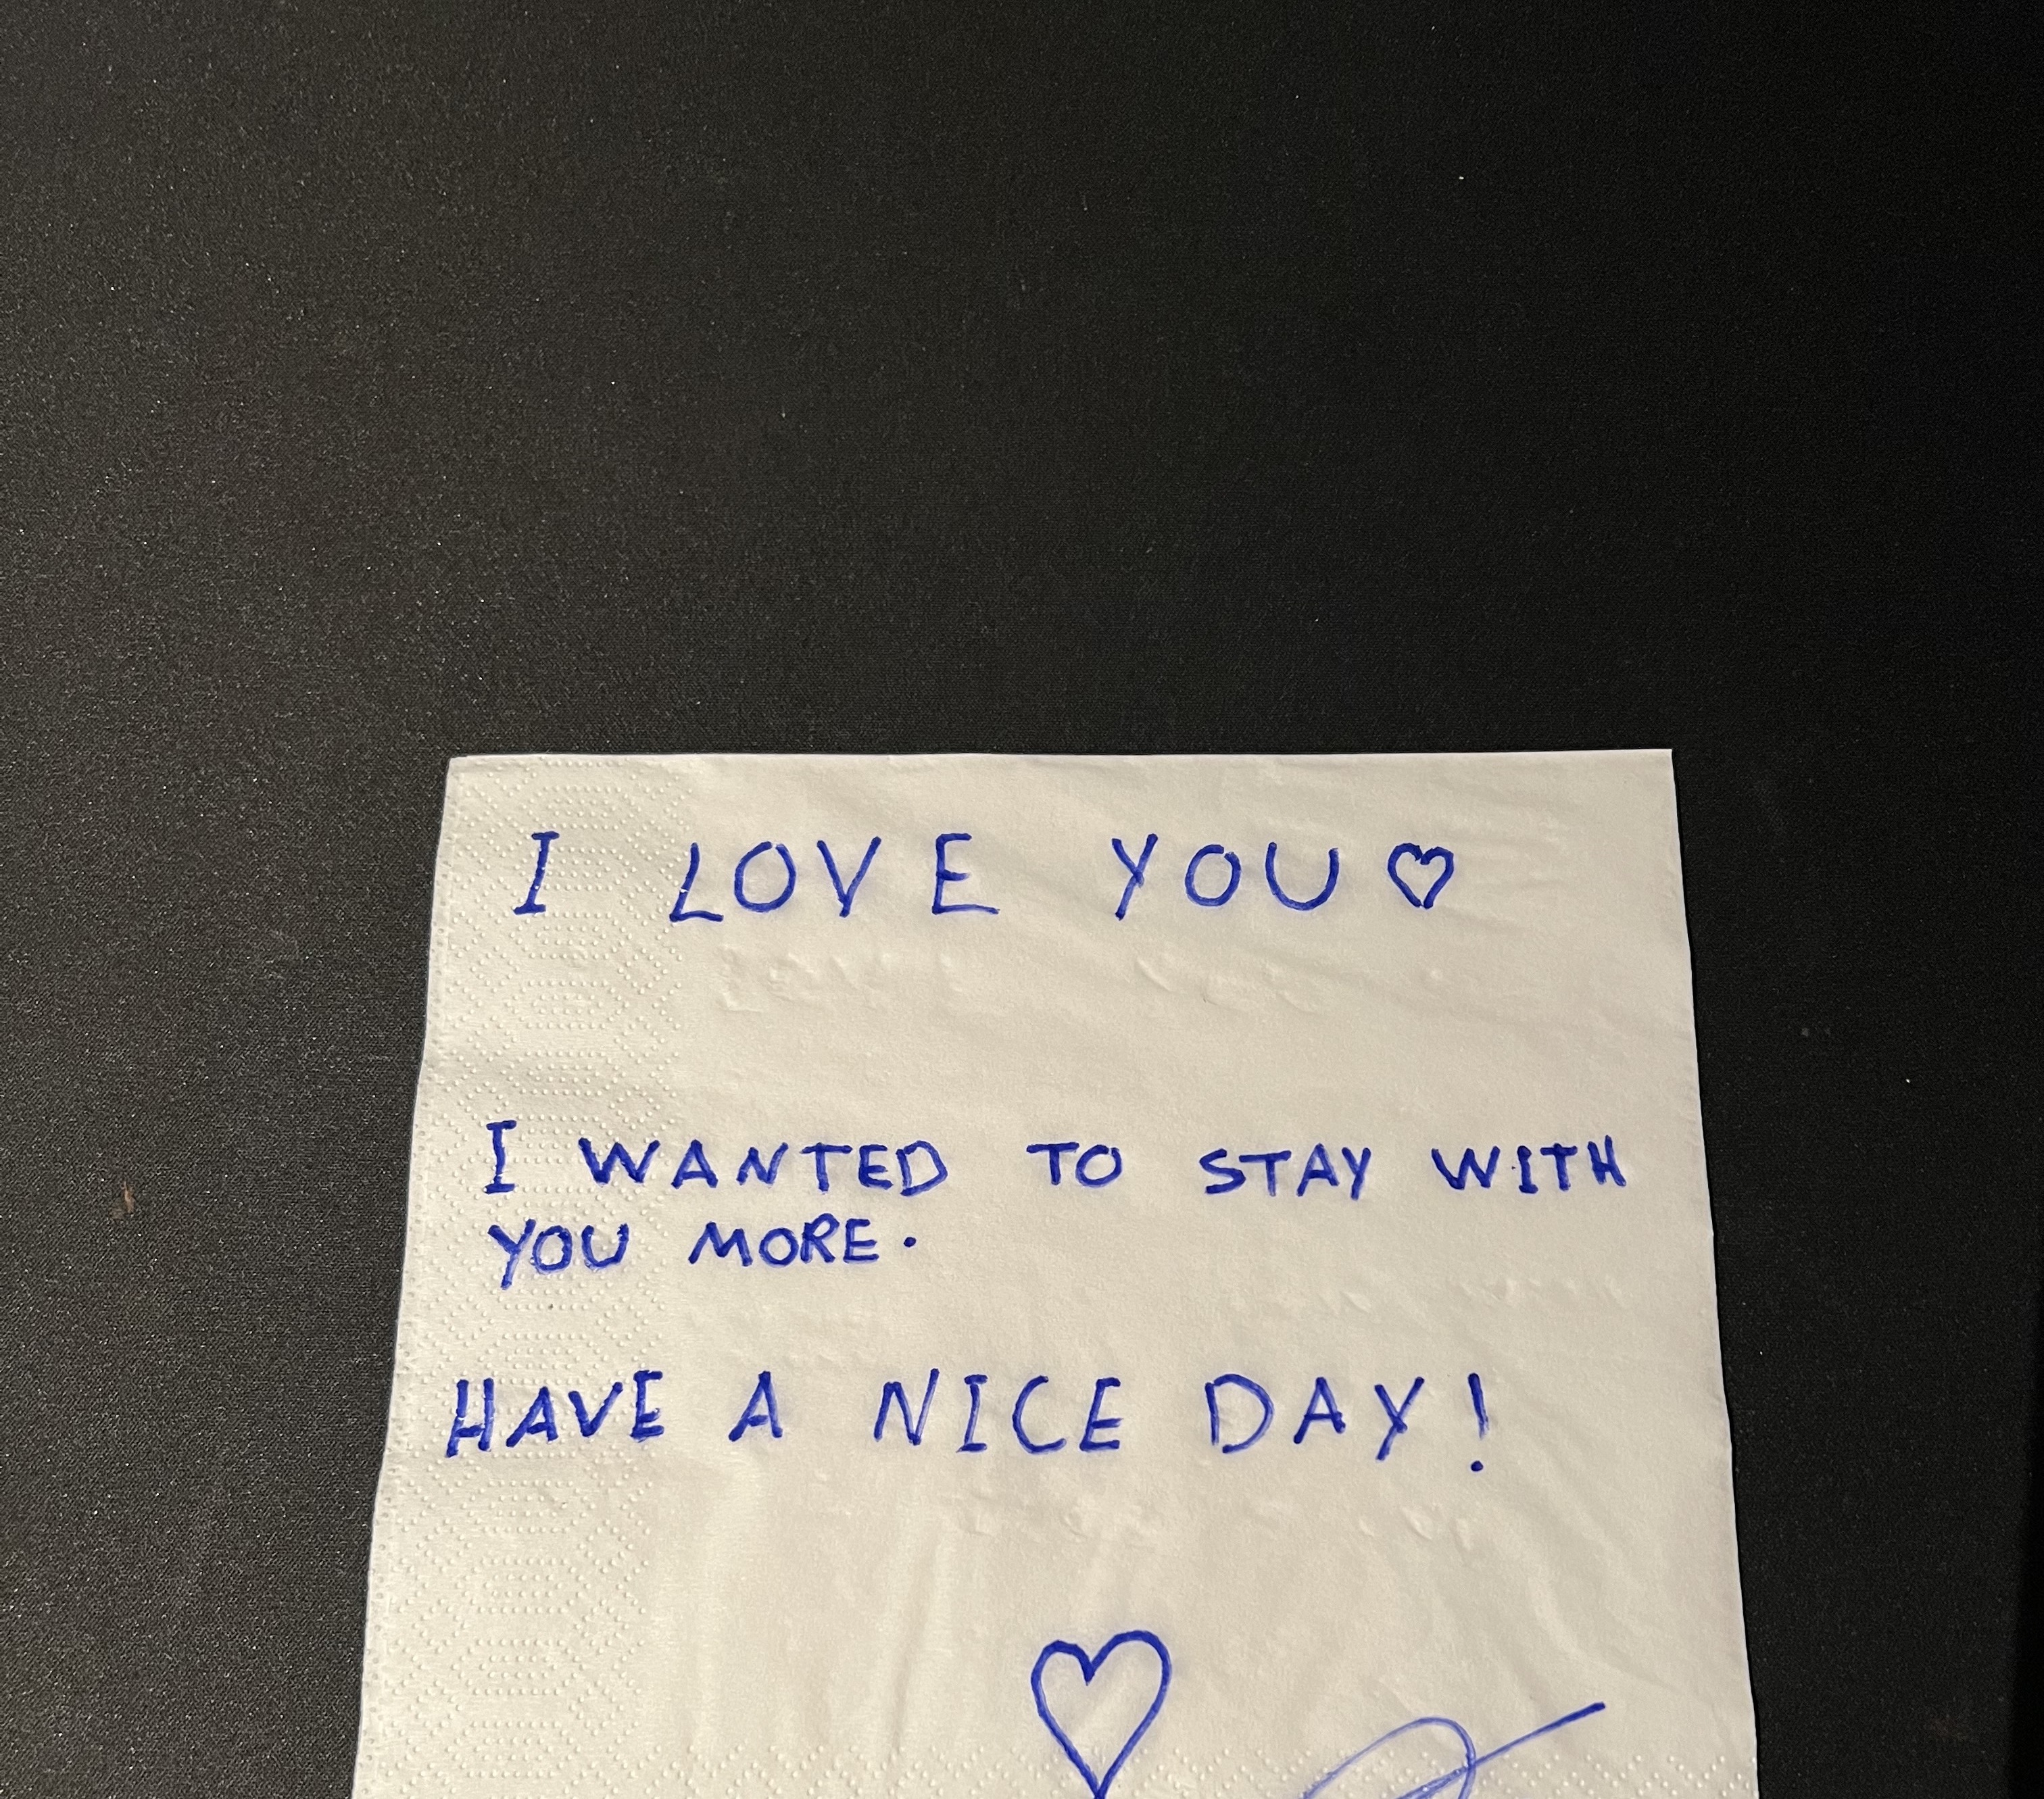 I LOVE YOU♡
I WANTED TO STAY WITH
YOU MORE.
HAVE A NICE DAY!